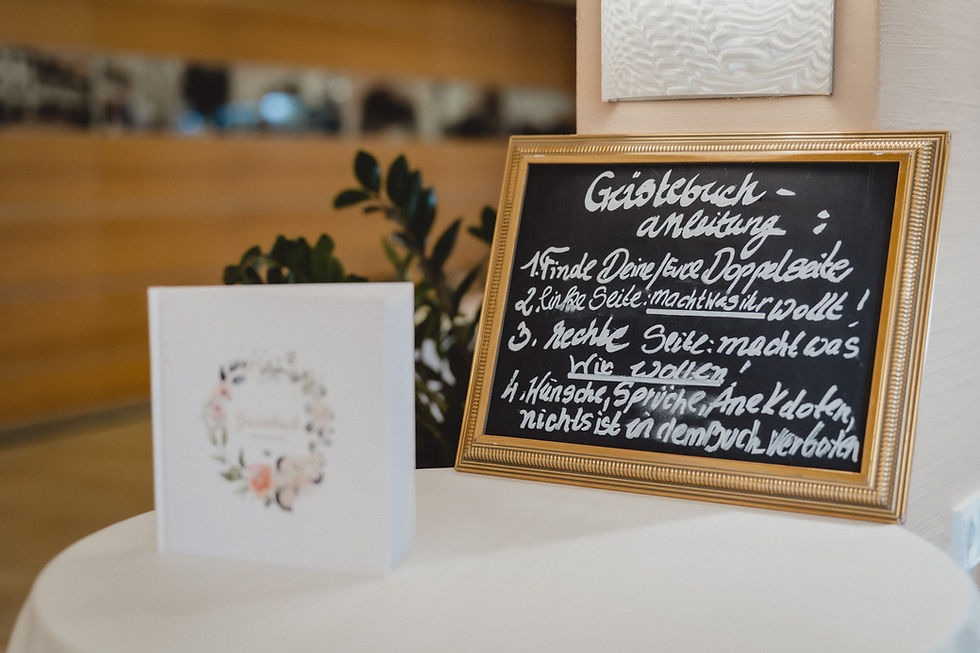 Gästebuch -
anleitung :
1. Finde Deine/Eure Doppelseite
2. linke Seite: macht was ihr wollt!
3. rechte Seite: macht was
Wir wollen!
4. Wünsche, Sprüche, Anekdoten,
nichts ist in dem Buch verboten